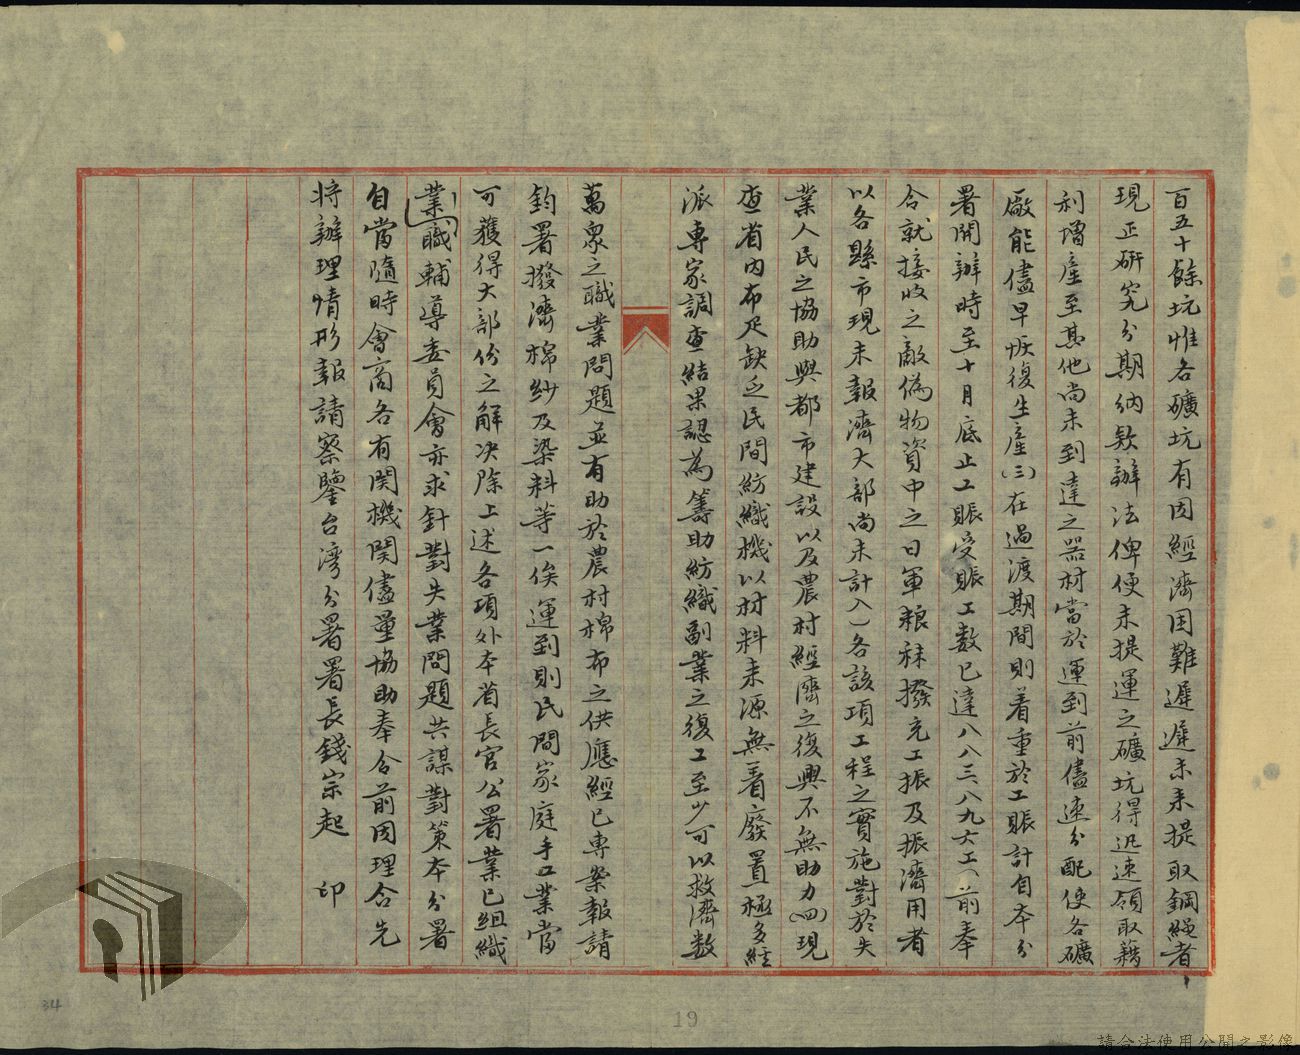 百五十餘坑惟各礦坑有因經濟困難遲遲未來提取鋼繩者
現正研究分期納欵辦法俾便未提運之礦坑得迅速領取藉
利增產至其他尚未到達之器材當於運到前儘速分配使各礦
廠能儘早恢復生產(三)在過渡期間則着重於工賑計自本分
署開辦時至十月底止工賑受賑工數已達八八三八九六工(前奉
令就接收之敵偽物資中之日軍粮秣撥充工振及振濟用者
以各縣市現未報濟大部尚未計入)各該項工程之實施對於失
業人民之協助與都市建設以及農村經濟之復興不無助力(四)現
查省內布疋缺乏民間紡織機以材料來源無着廢置極多經
派專家調查結果認為籌助紡織副業之復工至少可以救濟數
萬衆之職業問題並有助於農村棉布之供應經已專案報請
鈞署撥濟棉紗及染料等一俟運到則民間家庭手工業當
可獲得大部份之解決除上述各項外本省長官公署業已組織
業職輔導委員會亦求針對失業問題共謀對策本分署
自當隨時會商各有関機関儘量協助奉令前因理合先
將辦理情形報請察鑒台灣分署署長錢宗起 印
19
34
請合法使用公開之影像